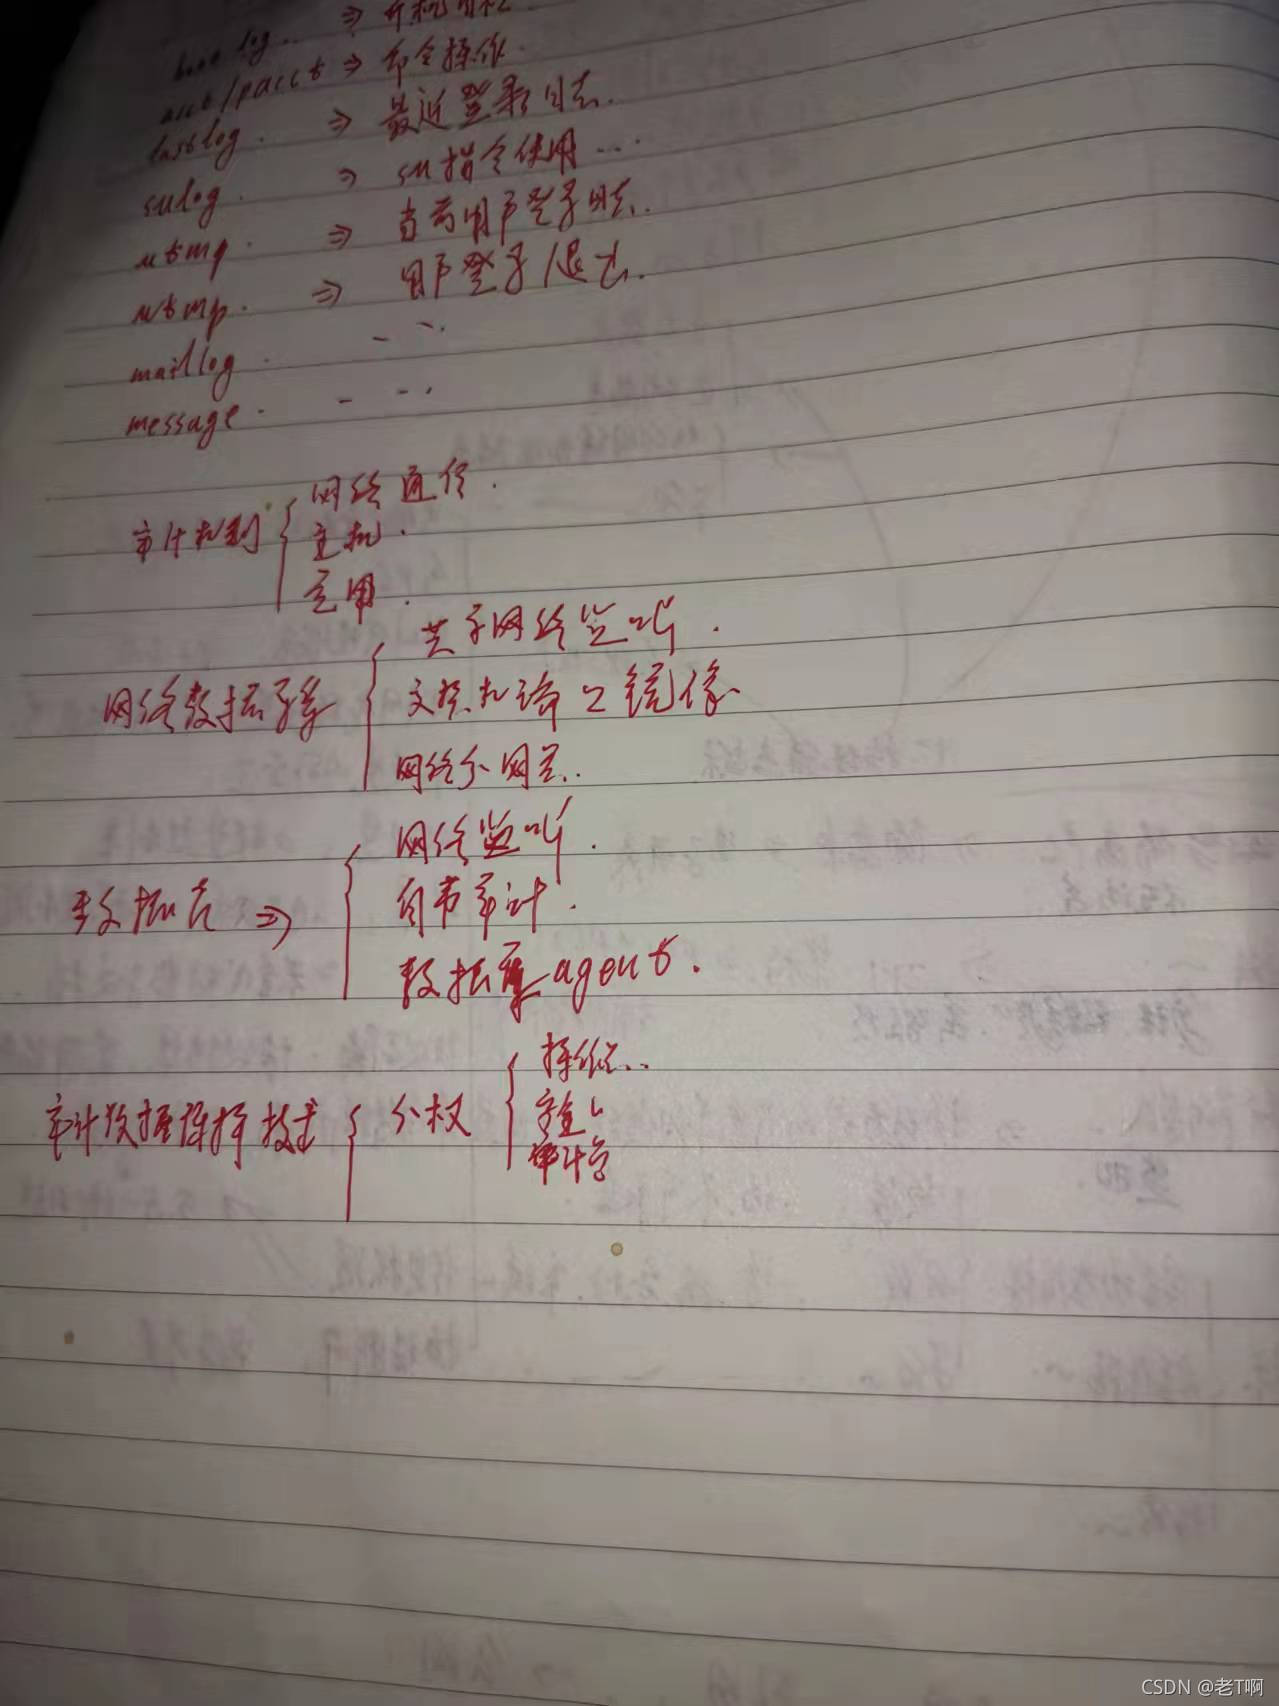 boot log. ⇒
acct/pacct ⇒ 命令操作.
lastlog. ⇒ 最近登录日志.
sulog. ⇒ su指令使用...
utmp. ⇒ 当前用户登录日志.
wtmp. ⇒ 用户登录/退出.
maillog.
message.
审计机制
网络通信.
主机.
应用.
网络数据采集
共享网络监听.
交换机端口镜像
网络分
数据库 ⇒
网络监听.
自带审计.
数据库agent.
审计数据保护技术
分权
操作
安全
审计
CSDN @老T啊